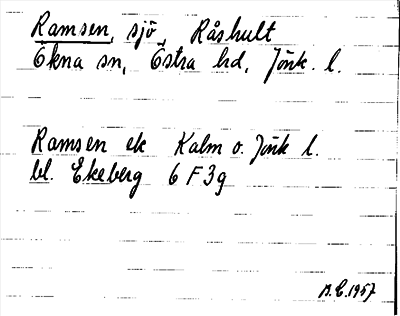 Ramsen, sjö, Råshult
Ökna sn, Östra hd, Jönk. l.
Ramsen ek Kalm o. Jönk l.
bl. Ekeberg 6 F 3g
B.E. 1957